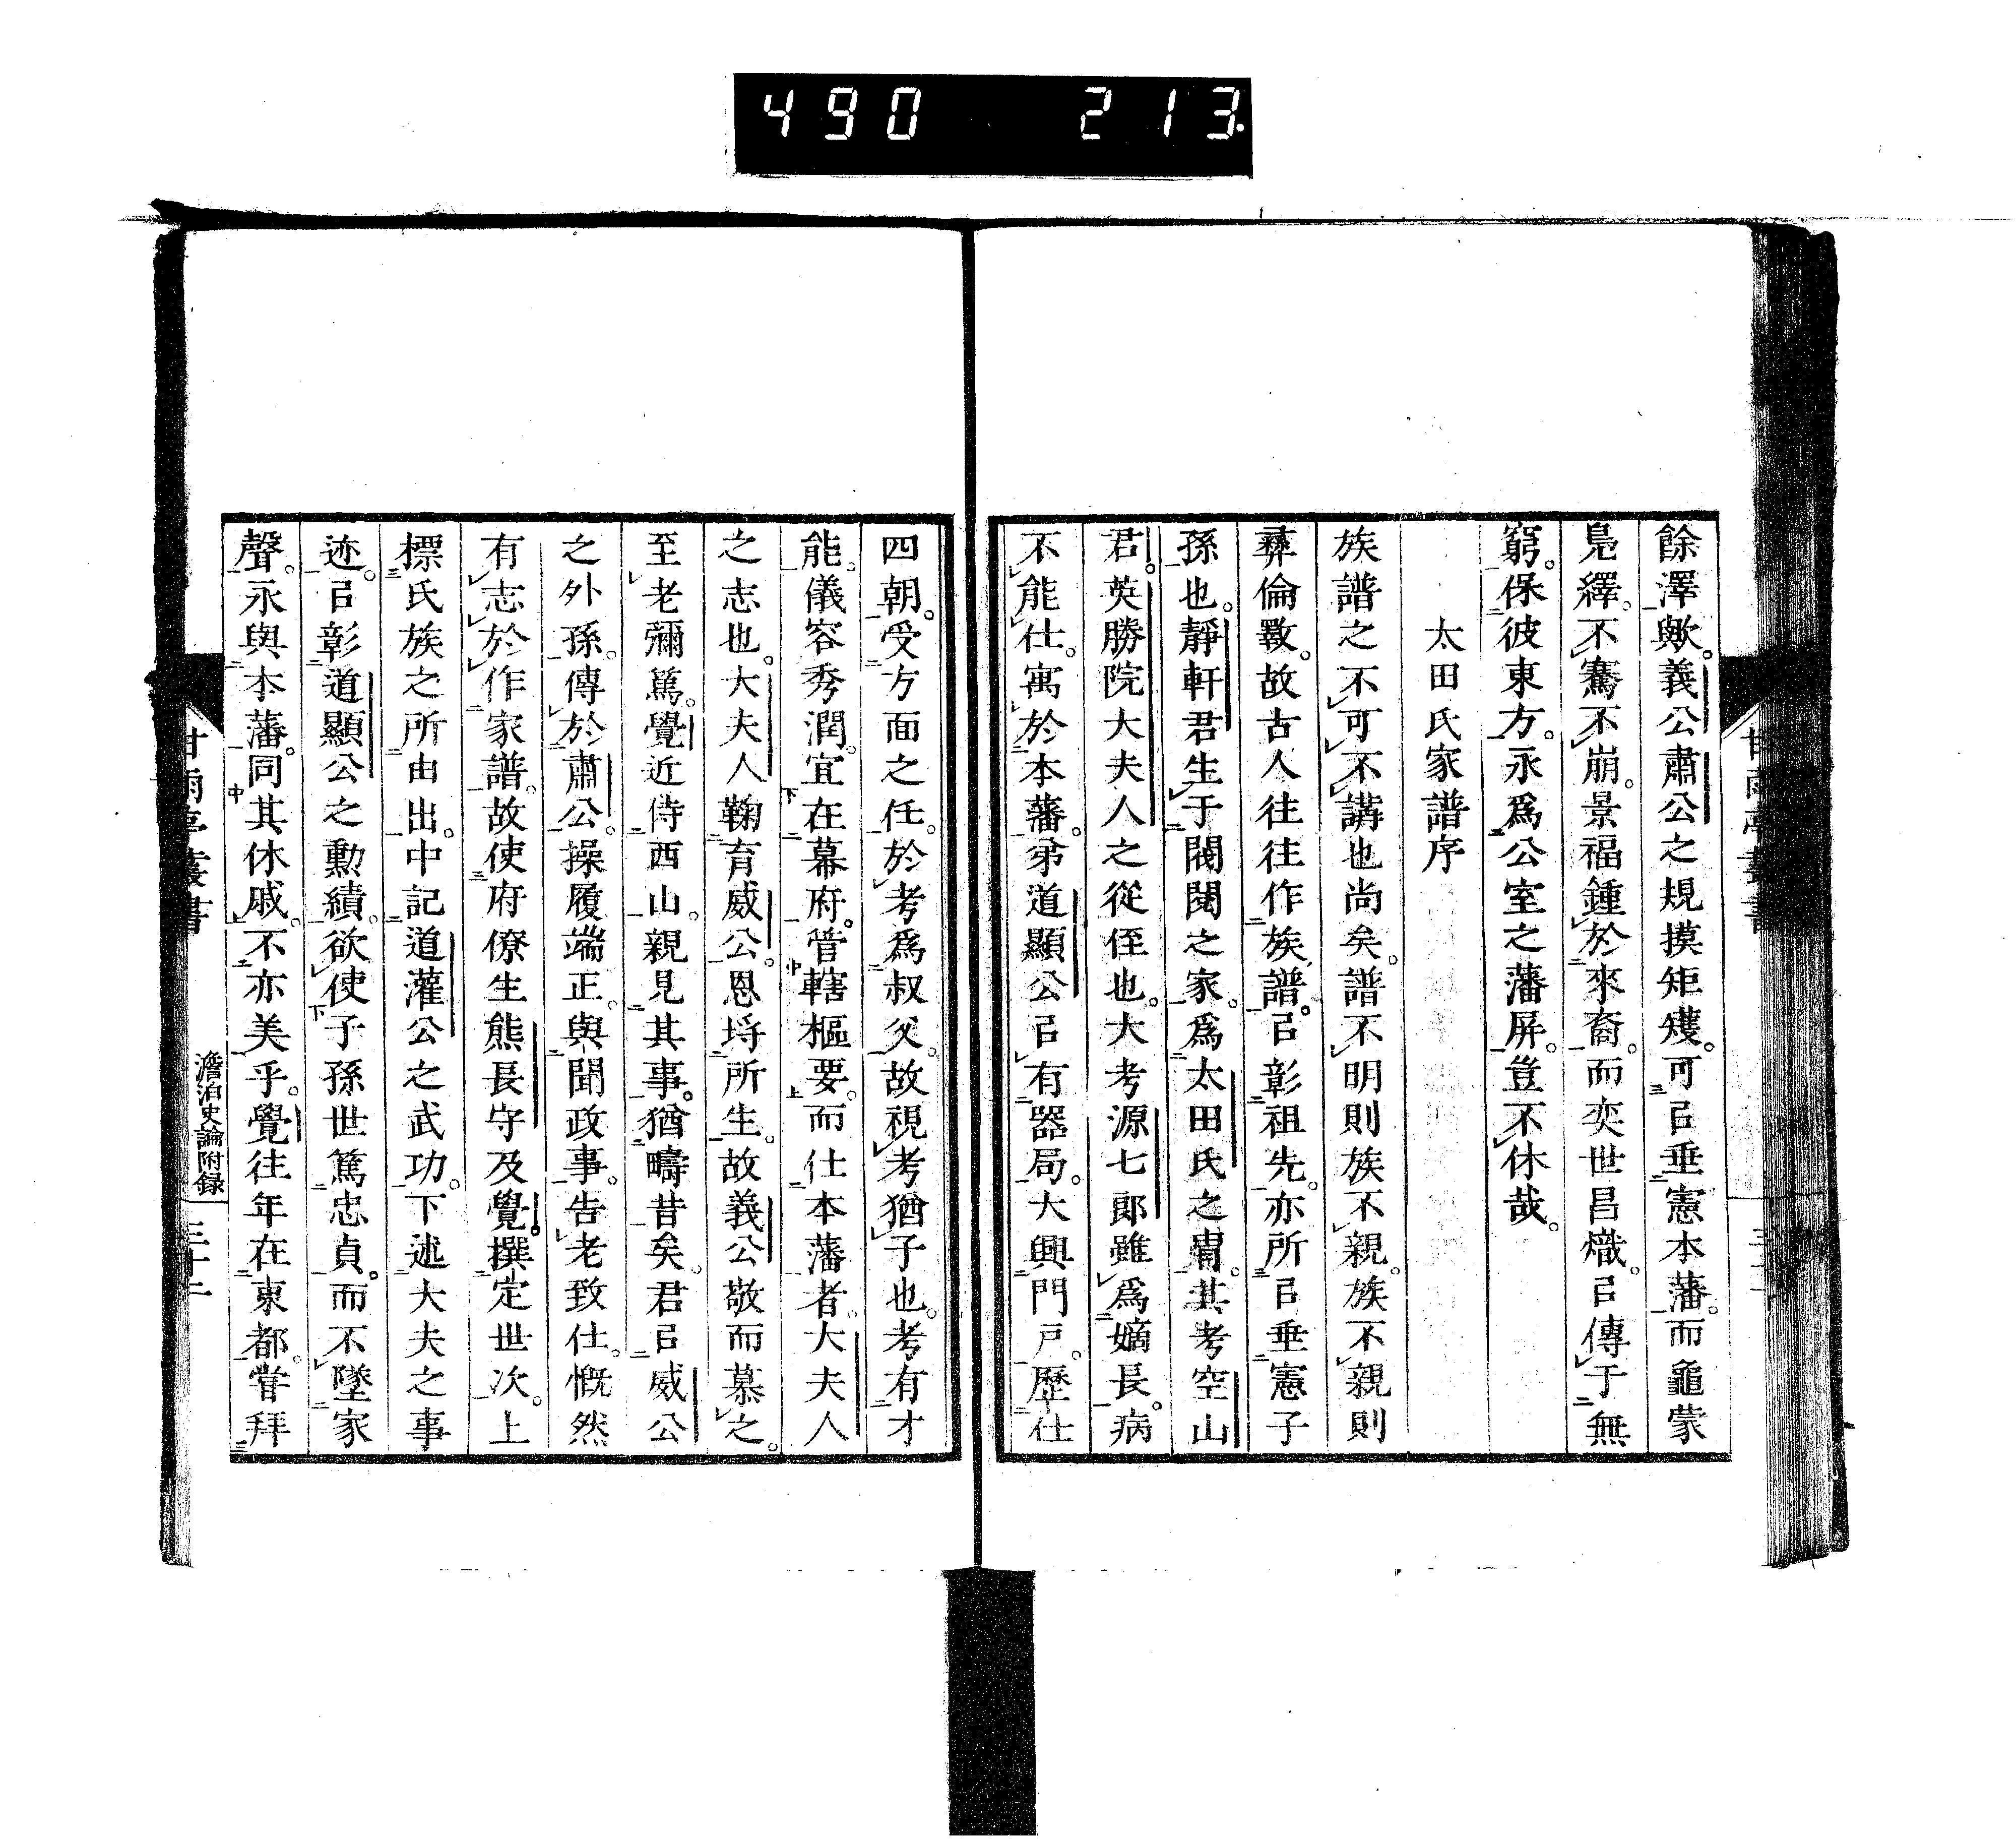 490 213.
餘澤歟。義公肅公之規摸矩矱。可㠯垂憲本藩。而龜蒙
鳧繹。不騫不崩。景福鍾於來裔。而奕世昌熾。㠯傳于無
窮。保彼東方。永爲公室之藩屏。豈不休哉。
太田氏家譜序
族譜之不可不講也尚矣。譜不明則族不親。族不親則
彝倫斁。故古人往往作族譜。㠯彰祖先。亦所㠯垂憲子
孫也。靜軒君生于閥閱之家。爲太田氏之冑。其考空山
君。英勝院大夫人之從侄也。大考源七郎雖爲嫡長。病
不能仕。寓於本藩。弟道顯公㠯有器局。大興門戶。歷仕
四朝。受方面之任。於考爲叔父。故視考猶子也。考有才
能。儀容秀潤。宜在幕府。管轄樞要。而仕本藩者。大夫人
之志也。大夫人鞠育威公。恩埒所生。故義公敬而慕之。
至老彌篤。覺近侍西山。親見其事。猶疇昔矣。君㠯威公
之外孫。傳於肅公。操履端正。與聞政事。告老致仕。慨然
有志於作家譜。故使府僚生熊長守及覺。撰定世次。上
標氏族之所由出。中記道灌公之武功。下述大夫之事
迹。㠯彰道顯公之勳績。欲使子孫世篤忠貞。而不墜家
聲。永與本藩。同其休戚。不亦美乎。覺往年在東都。嘗拜
甘雨亭叢書
澹泊史論附録
三十二